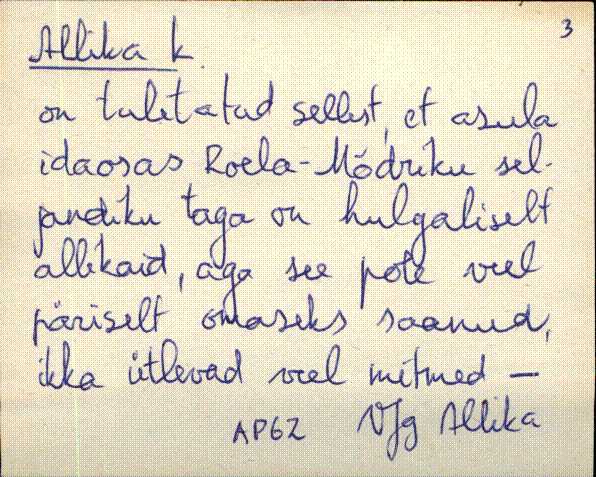 3
Allika k.
on tuletatud sellest, et asula
idaosas Roela-Mõdriku sel-
jandiku taga on hulgaliselt
allikaid, aga see pole veel
päriselt omaseks saanud,
ikka ütlevad veel mitmed –
AP62 VJg Allika